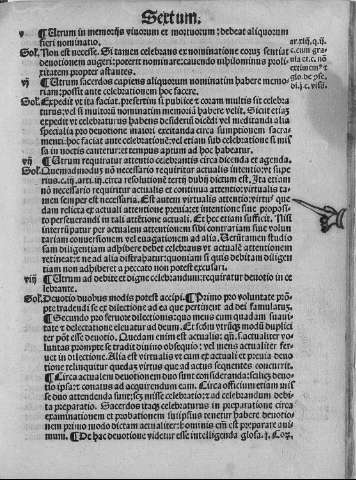 Sextum.
v ¶ Utrum in memorijs vivorum et mortuorum: debeat aliquorum
fieri nominatio.
Sol. Non est necesse. Si tamen celebrans ex nominatione eorum sentiat
devotionem augeri: poterit nominare: cavendo nihilominus proli-
xitatem propter astantes.
vj ¶ Utrum sacerdos capiens aliquorum nominatim habere memo-
riam: possit ante celebrationem hoc facere.
Sol. Expedit ut ita faciat. presertim si publice et coram multis sit celebra
turus: vel si multorum nominatim memoriam habere velit. Sicut etiam
expedit ut celebraturus habens desiderium dicendi vel meditandi alia
specialia pro devotione maiori excitanda circa sumptionem sacra-
menti: hoc faciat ante celebrationem: vel etiam sub celebratione si mis
sa in notis cantetur: et tempus aptum ad hoc habeatur.
vij ¶ Utrum requiratur attentio celebrantis circa dicenda et agenda.
Sol. Quemadmodum non necessario requiritur actualis intentio: ut supe
rius. circa resolutionem tertij dubij dictum est. Ita etiam
non necessario requiritur actualis et continua attentio: virtualis ta-
men semper est necessaria. Est autem virtualis attentio: virtus que
dam relicta ex actuali attentione previa: et intentione sive proposi-
to perseverandi in tali attentione actuali. Et hec etiam sufficit. Nisi
interrumpatur per actualem attentionem sibi contrariam sive volun
tariam conversionem vel evagationem ad alia. Verumtamen studio
sam diligentiam adhibere debet celebrans ut actualem attentionem
retineat: et ne ad alia distrahatur: quoniam si quis debitam diligen
tiam non adhiberet: a peccato non potest excusari.
viij ¶ Utrum ad debite et digne celebrandum: requiratur devotio in ce
lebrante.
Sol. Devotio duobus modis potest accipi. ¶ Primo pro voluntate prom̄-
pte tradendi se ex dilectione ad ea que pertinent ad dei famulatum.
¶ Secundo pro fervore dilectionis: quo mens cum quadam suavi-
tate et delectatione elevatur ad deum. Et secundum utrumque modum duplici
ter potest esse devotio. Quedam enim est actualis: quando scilicet actualiter vo
luntas prompte se tradit divino obsequio: vel mens actualiter fer-
vet in dilectione. Alia est virtualis ut cum ex actuali et previa devo
tione relinquitur quedam virtus que ad actus sequentes concurrit.
¶ Circa actualem devotionem duo sunt consideranda: scilicet devo
tio ipsa: et conatus ad acquirendum eam. Circa officium etiam mis
se duo attendenda sunt: scilicet misse celebratio: et ad celebrandum debi-
ta preparatio. Sacerdos itaque celebraturus in preparatione circa
examinationem et probationem suiipsius tenetur habere devotio
nem primo modo dictam actualiter: hominis enim est preparare ani-
mum. ¶ De hac devotione videtur esse intelligenda glosa. j. Cor.